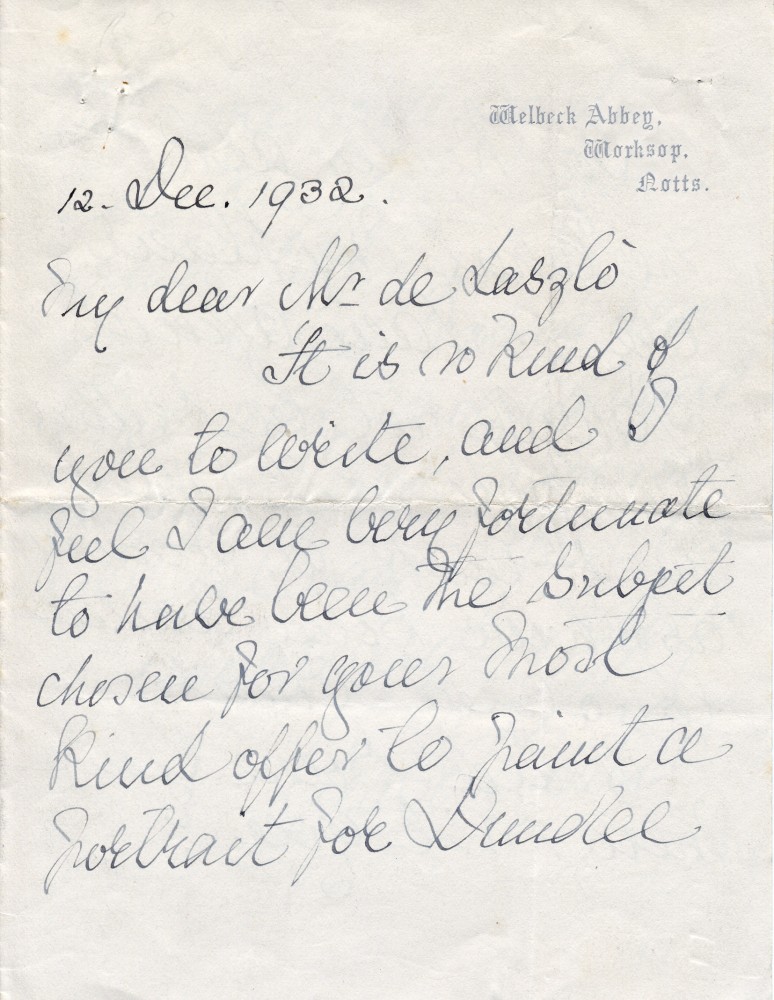 Welbeck Abbey,
Worksop,
Notts.
12. Dec. 1932.
My dear Mr de Laszlò
It is so kind of
you to write, and I
feel I am very fortunate
to have been the subject
chosen for your most
kind offer to paint a
portrait for Dundee